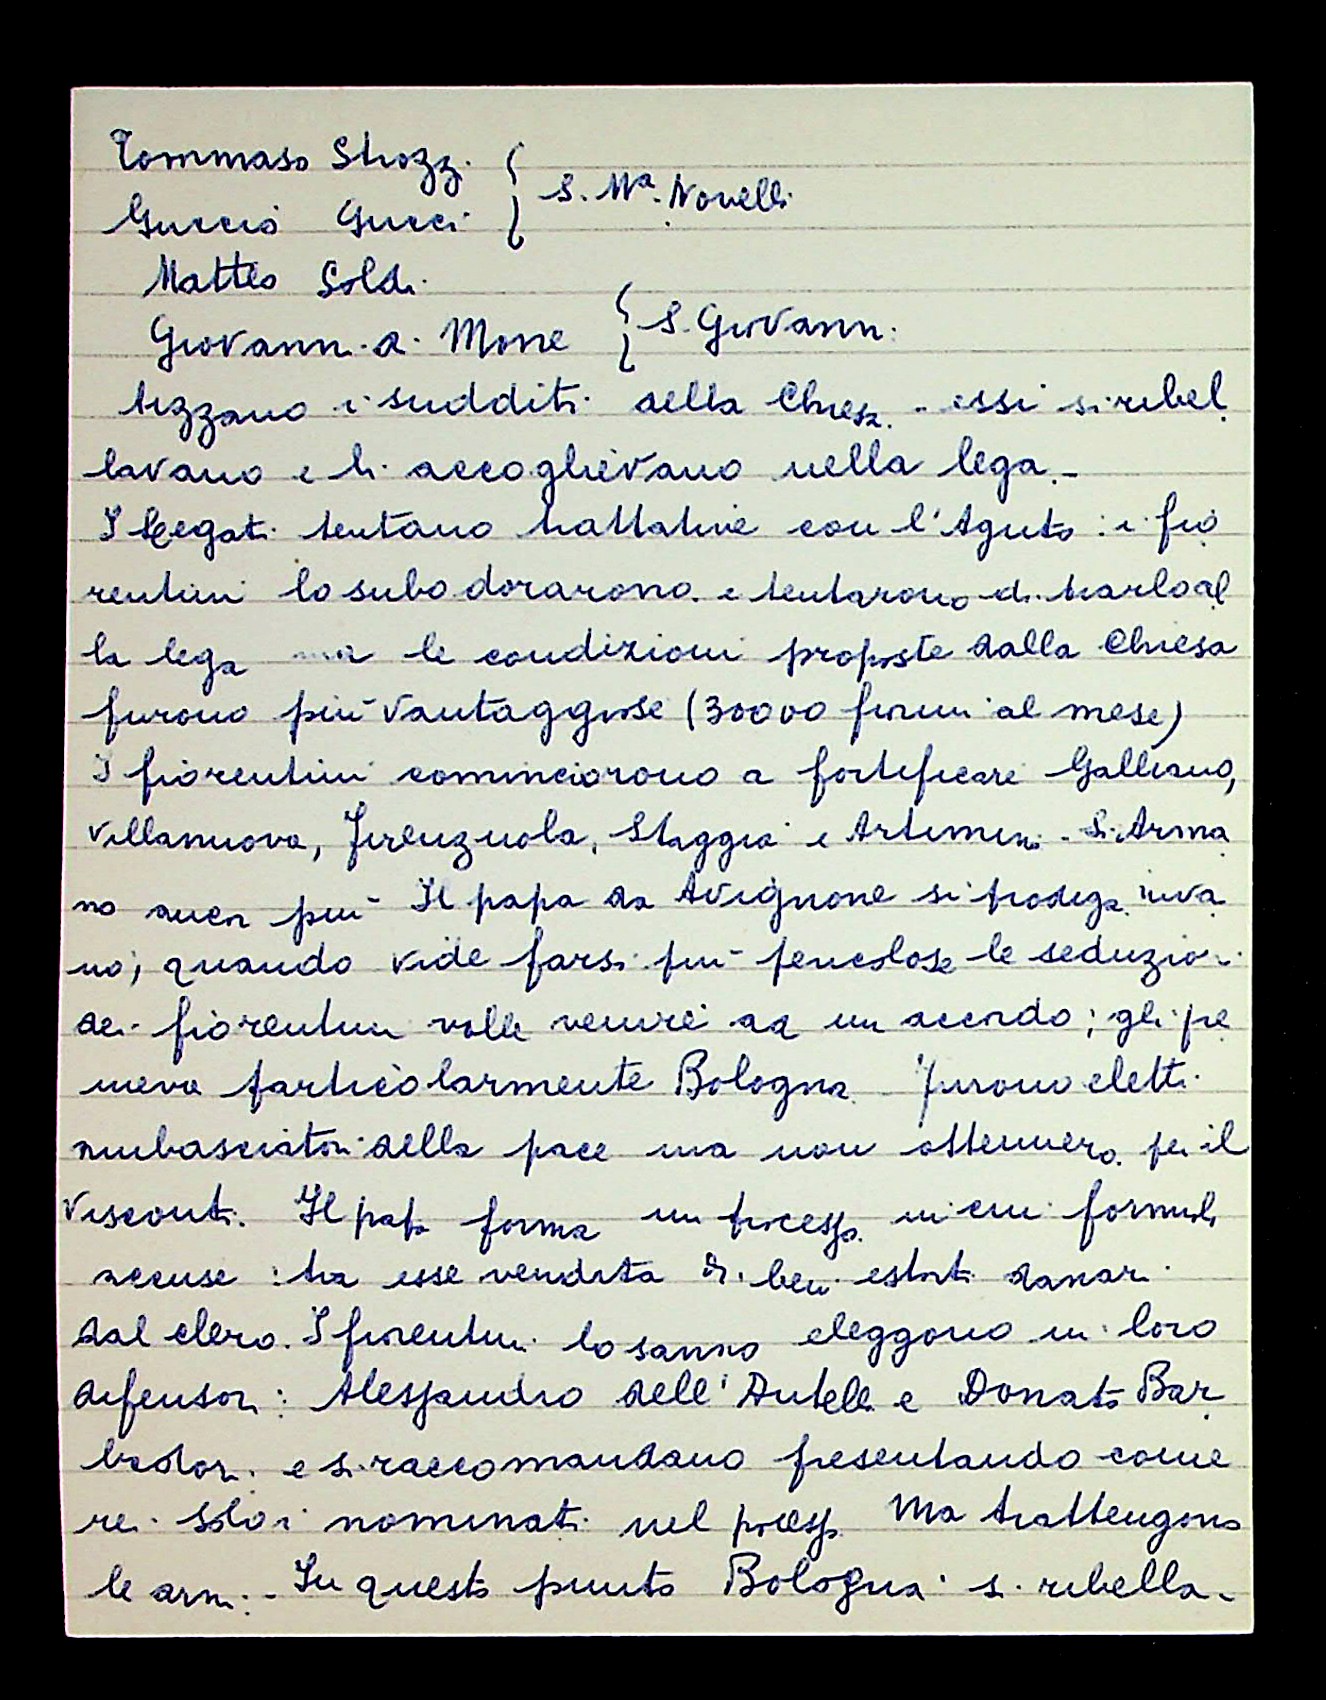 Tommaso Strozzi } S. Mª. Novelli
Guccio Gucci
Matteo Soldi
Giovanni di Mone } S. Giovanni
tizzano i sudditi della Chiesa - essi si ribel
lavano e li accoglievano nella lega. -
I Legati tentano trattative con l'Aguto: i fio
rentini lo subodorarono e tentarono di trarlo al
la lega ma le condizioni proposte dalla Chiesa
furono più vantaggiose (30000 fiorini al mese)
I fiorentini cominciorono a fortificare Galliano,
Villanuova, Firenzuola, Staggia e Artimino - Si Arma
no ancor più Il papa da Avignone si prodiga inva
no; quando vide farsi più pericolose le seduzioni
dei fiorentini volle venire ad un accordo; gli pre
meva particolarmente Bologna. Furono eletti
ambasciatori della pace ma non ottennero per il
Visconti. Il papa forma un processo in cui formula
accuse: tra esse vendita di beni estorti danari
dal clero. I fiorentini lo sanno eleggono in loro
difensori: Alessandro dell'Antella e Donato Bar
badori e si raccomandano presentando come
rei solo i nominati nel processo Ma trattengono
le armi. - In questo punto Bologna si ribella -